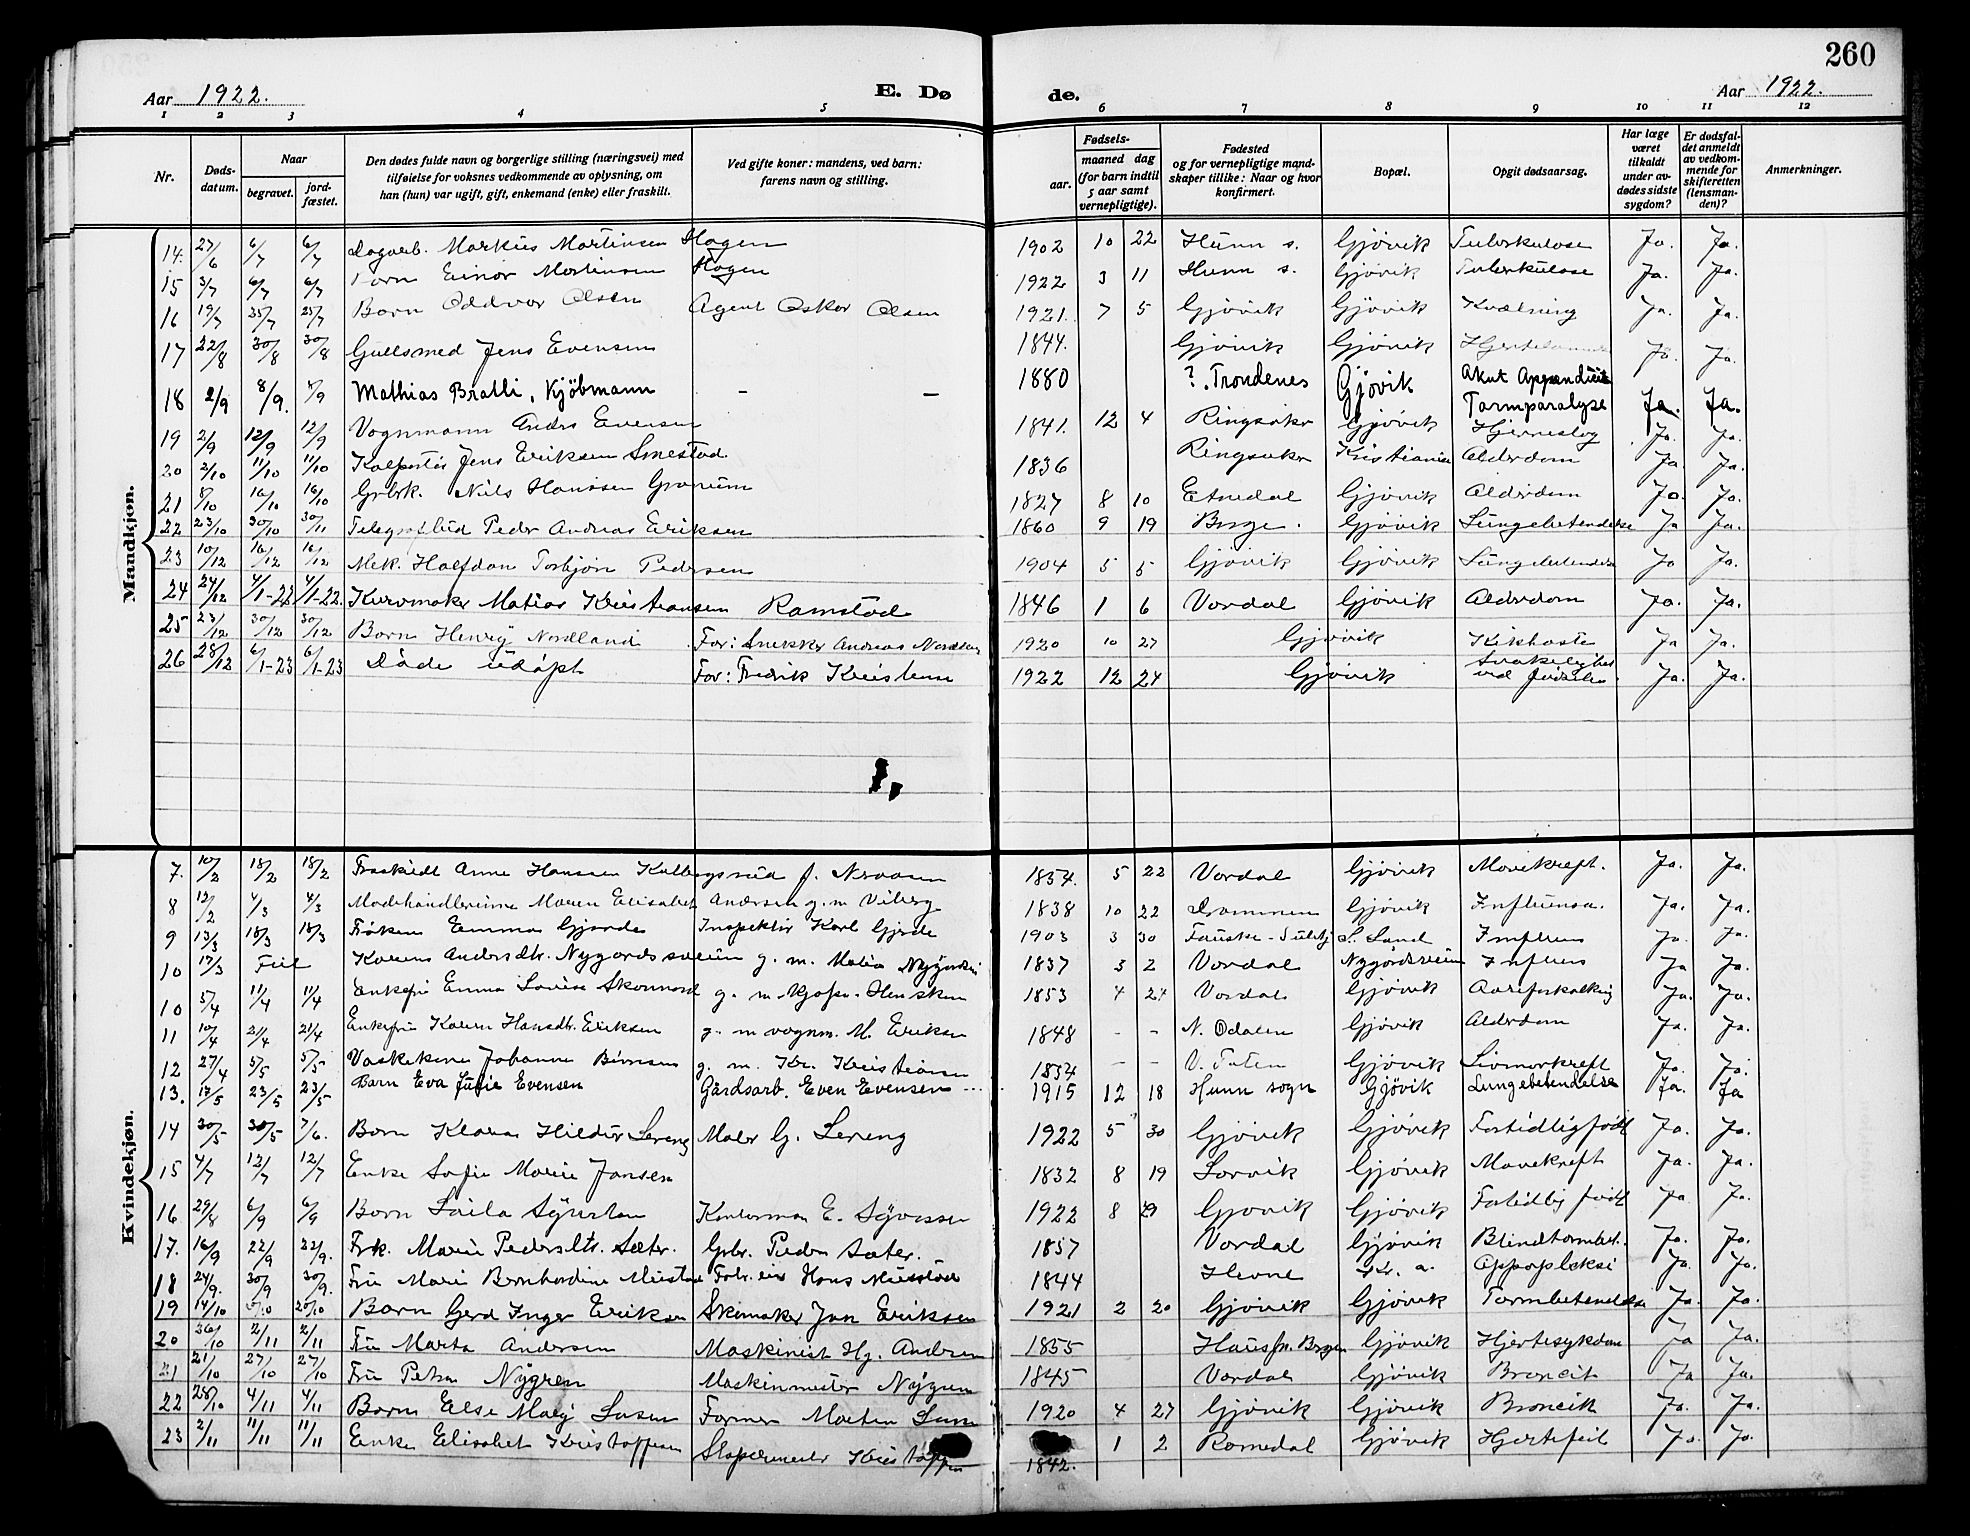 260
Aar 1922.
E. Døde.
Aar 1922.
1 2 3 4 5 6 7 8 9 10 11 12
Nr.
Døds-
datum.
Naar
begravet.
jord-
fæstet.
Den dødes fulde navn og borgerlige stilling (næringsvei) med
tilføielse for voksnes vedkommende av oplysning, om
han (hun) var ugift, gift, enkemand (enke) eller fraskilt.
Ved gifte koner: mandens, ved barn:
farens navn og stilling.
Fødsels-
aar.
maaned dag
(for barn indtil
5 aar samt
vernepligtige).
Fødested
og for vernepligtige mand-
skaper tillike: Naar og hvor
konfirmert.
Bopæl.
Opgit dødsaarsag.
Har læge
været
tilkaldt
under av-
dødes sidste
sygdom?
Er dødsfal-
det anmeldt
av vedkom-
mende for
skifteretten
(lensman-
den)?
Anmerkninger.
Mandkjøn.
14. 27/6 6/7 6/7 Dagarb. Markus Martinsen Hagen 1902 10 22 Hunn s. Gjøvik Tuberkulose Ja. Ja.
15 3/7 6/7 6/7 Barn Einar Martinsen Hagen 1922 3 11 Hunn s. Gjøvik Tuberkulose Ja. Ja.
16 19/7 25/7 25/7 Barn Oddvar Olsen Agent Oskar Olsen 1921. 7 5 Gjøvik Gjøvik Kvælning Ja. Ja.
17 22/8 30/8 30/8 Gullsmed Jens Evensen 1844. Gjøvik Gjøvik Ja. Ja.
18 2/9 8/9. 8/9 Mathias Bratli, Kjøbmann - - 1880 ?. Trondenes Gjøvik Akut Appendicit
Tarmparalyse Ja. Ja.
19 2/9 12/9 12/9 Vognmann Andrs Evensen 1841. 12 4 Ringsaker Gjøvik Hjerneslag Ja. Ja.
20 2/10 11/10 11/10 Kolportør Jens Eriksen Smestad 1836 Ringsaker Kristiania Alderdom Ja. Ja.
21 8/10 16/10 16/10 Grbrk. Nils Hansen Granum 1827 8 10 Etnedal Gjøvik Alderdom Ja. Ja.
22 23/10 30/10 30/11 Telegrafbud Peder Andreas Eriksen 1860 9 19 Borge. Gjøvik Lungebetendelse Ja Ja.
23 10/12 16/12 16/12 Mek. Halfdan Torbjørn Pedersen 1904 5 5 Gjøvik Gjøvik Lungebetendelse Ja Ja.
24 24/12 4/1-22 4/1-22. Kurvmaker Matias Kristiansen Ramstad 1846 1 6 Vardal Gjøvik Alderdom Ja. Ja.
25 23/12 30/12 30/12 Barn Henry Nordland Far: Snekker Andreas Nordland 1920 10 27 Gjøvik Kikhoste Ja Ja.
26 28/12 6/1-23 6/1-23 Døde udøpt Far: Fredrik Kristensen 1922 12 24 Gjøvik Svakelighet
ved fødselen. Ja. Ja.
Kvindekjøn.
7. 10/2 18/2 18/2 Fraskildt Anne Hansen Kolbergsrud f. Nraasen 1854. 5 22 Vardal Gjøvik Mavekreft. Ja. Ja.
8 12/2 4/3 4/3 Modehandlerinne Maren Elisabet Andersen g. m. Viberg 1838 10 22 Drammen Gjøvik Influensa. Ja. Ja.
9 13/3 18/3 18/3 Frøken Emma Gjærde Inspektør Karl Gjærde 1903 3 30 Fauske - Sulitj. S. Land Influens Ja. Ja.
10 17/3 Feil Karen Andersdtr. Nygardssveen g. m. Matias Nygardssv. 1837 3 2 Vardal Nygardsveen Influens Ja Ja.
10 5/4 11/4 11/4 Enkefru Emma Lovise Skonnord g. m. 1853 4 24 Vardal Gjøvik Aareforkalkning Ja. Ja.
11 10/4 21/4 21/4 Enkefru Karen Hansdtr. Eriksen g. m vognm. M. Eriksen 1848 - - N. Odalen Gjøvik Alderdom Ja. Ja.
12 27/4 5/5 5/5 Vaskekone Johanne g. m. Kr. Kristiansen 1854 - - V. Toten Gjøvik Livmorkreft Ja. Ja.
13. 17/5 23/5 23/5 Barn Eva Julie Evensen Gårdsarb. Even Evensen ... 1915 12 18 Hunn sogn Gjøvik Lungebetendelse Ja. Ja
14 30/5 30/5 7/6. Barn Klara Hildur Lereng Maler G. Lereng 1922 5 30 Gjøvik Gjøvik Fortidlig født Ja. Ja.
15 4/7 12/7 12/7 Enke Sofie Marie Jansen 1832 8 19 Larvik Gjøvik Mavekreft Ja. Ja.
16 29/8 6/9 6/9 Barn Laila Syversen Kontorman E. Syversen 1922 8 29 Gjøvik Gjøvik Fortidlig født Ja. Ja.
17. 16/9 22/9 22/9. Frk. Marie Pedersdtr. Sæter. Grbr. Peder Sæter. 1857 Vardal Gjøvik Blindtarmbet. Ja. Ja.
18 24/9. 30/9 30/9 Fru Marie Bernhardine Mustad Fabr. eier Hans Mustad 1844 Hevne Kr. a. Appopleksi Ja. Ja.
19 14/10 20/10 20/10 Barn Gerd Inger Eriksen Skomaker Jan Eriksen 1921 2 20 Gjøvik Gjøvik Tarmbetendelse Ja. Ja.
20 26/10 2/11 2/11 Fru Marta Andersen Maskinist Hj. Andersen 1855 Haus pr. Bergen Gjøvik Hjertesykdom Ja Ja.
21 21/10 27/10 27/10 Fru Petra Nygren Maskinmester Nygren 1845 Vardal Gjøvik Broncit Ja Ja.
22 28/10 4/11 4/11 Barn Else Mary Larsen Former Morten Larsen 1920 4 27 Gjøvik Gjøvik Broncit Ja. Ja.
23 2/11 11/11 11/11 Enke Elisabet Kristoffersen Stopermester Kristoffersen 1842. 1 2 Romedal Gjøvik Hjertefeil Ja. Ja.